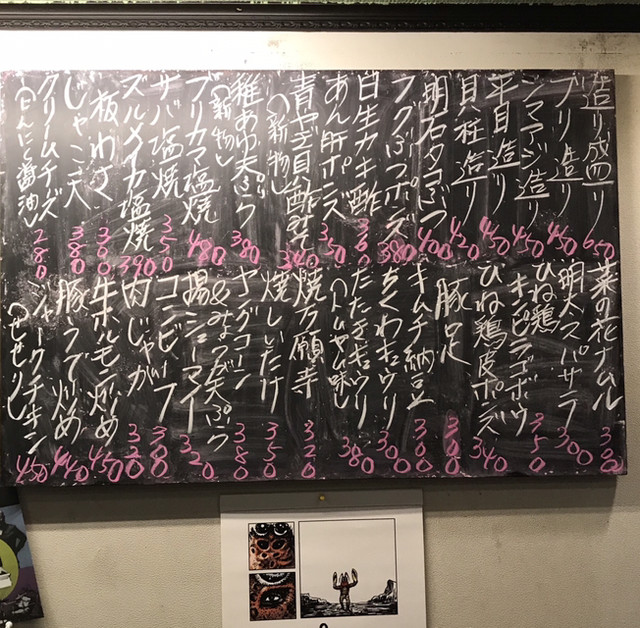 造り盛り 650
ブリ造り 450
シマアジ造り 450
平目造り 450
貝柱造り 420
明石タコぶつ 400
フグぶつポンズ 380
白生カキ酢 360
あん肝ポンズ 350
青やぎ貝酢みそ 340
(新物)
稚あゆ天ぷら 380
(新物)
ブリカマ塩焼 480
サバ塩焼 350
ズルメイカ塩焼 390
板わさ 380
じゃこ天 380
クリームチーズ 280
(にんにく醤油)
菜の花ナムル 380
明太スパサラ 300
ひね鶏キンピラゴボウ 350
ひね鶏皮ポンズ 340
豚足 300
キムチ納豆 300
ちくわキウリ 300
たたきキウリ 380
(トムヤム味)
焼万願寺 320
焼しいたけ 350
ヤングコーン 380
&みょうが天ぷら
揚シューマイ 320
コンビーフ 300
肉じゃが 320
牛ホルモン炒め 450
豚フグ炒め 440
ジャークチキン 450
(せせり)